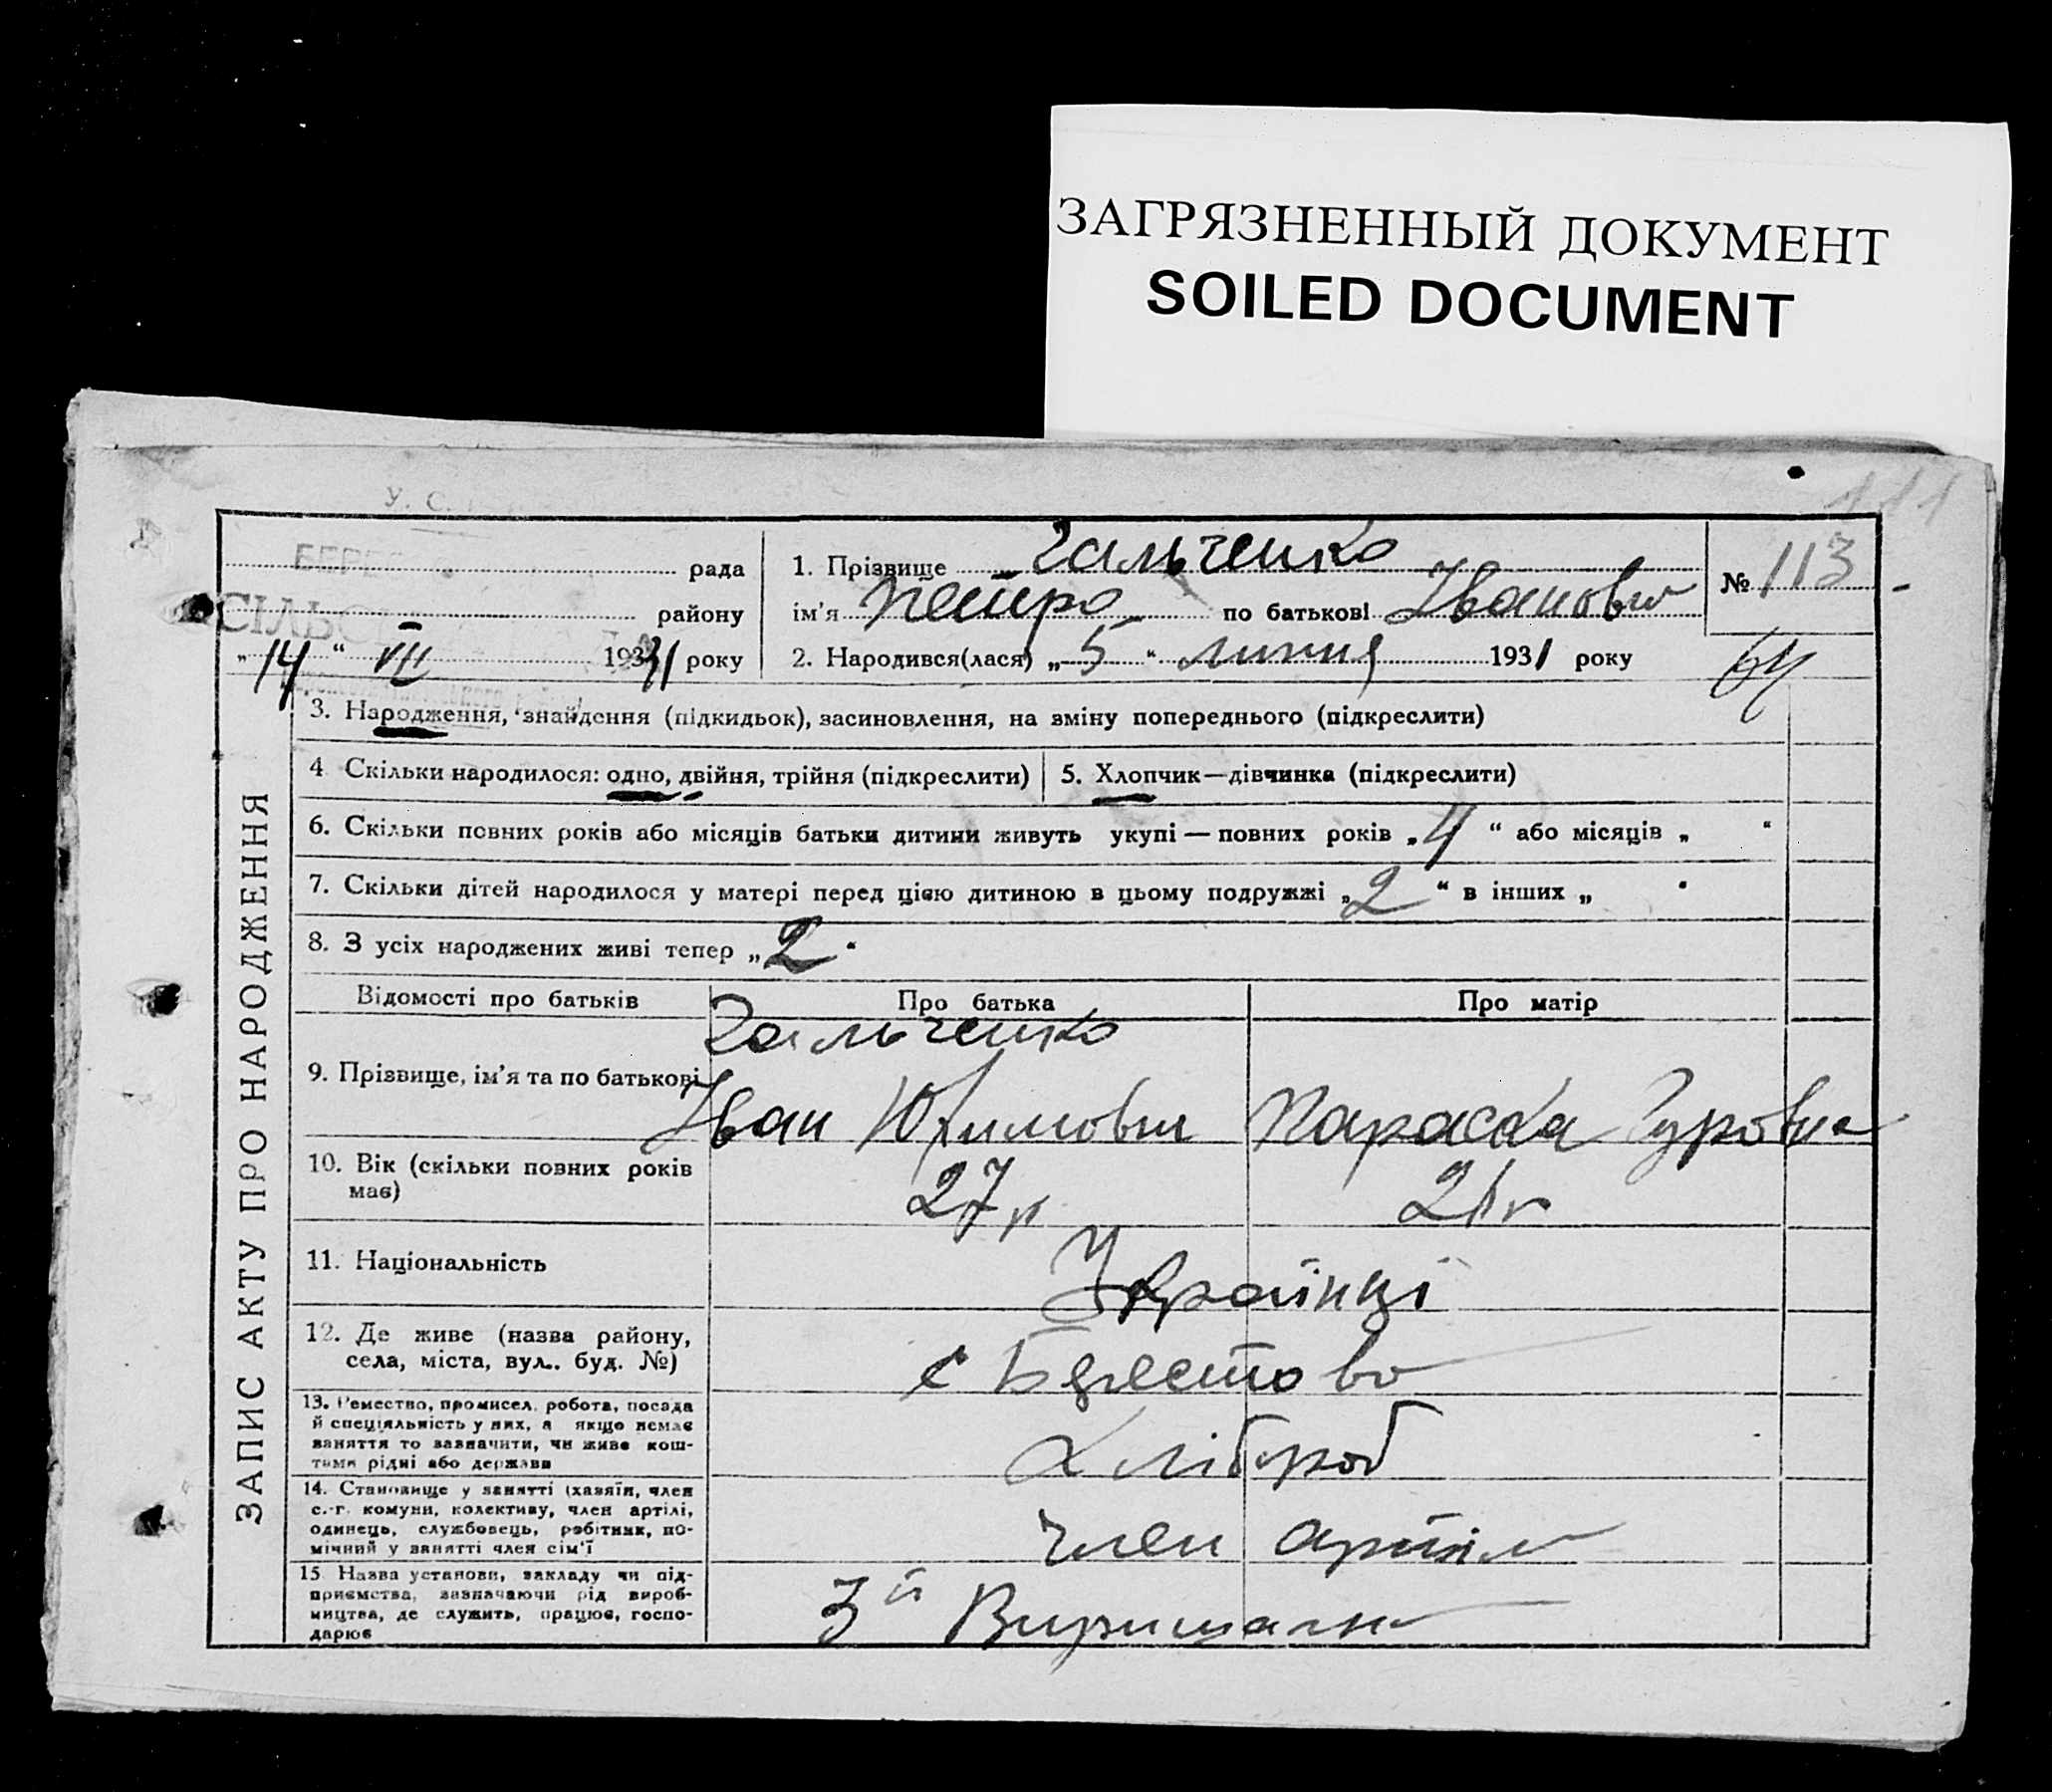 ЗАГРЯЗНЕННЫЙ ДОКУМЕНТ
SOILED DOCUMENT
111
У. С.
рада
району
„14“ VII 1931 року
1. Прізвище Гальченко
ім'я Петро по батькові Іванович
2. Народився(лася) „5“ липня 1931 року
№ 113
64
ЗАПИС АКТУ ПРО НАРОДЖЕННЯ
3. Народження, знайдення (підкидьок), засиновлення, на зміну попереднього (підкреслити)
4 Скільки народилося: одно, двійня, трійня (підкреслити)
5. Хлопчик—дівчинка (підкреслити)
6. Скільки повних років або місяців батьки дитини живуть укупі — повних років „4“ або місяців „ “
7. Скільки дітей народилося у матері перед цією дитиною в цьому подружжі „2“ в інших „ “
8. З усіх народжених живі тепер „2“
Відомості про батьків Про батька Про матір
Гальченко
9. Прізвище, ім'я та по батькові Іван Юхимович Параска Гуровна
10. Вік (скільки повних років 27 р 21 р
має)
11. Національність Українці
12. Де живе (назва району,
села, міста, вул.. буд. №) с Берестово
13. Ремество, промисел, робота, посада
й спеціяльність у них, а якщо немає
заняття то зазначити, чи живе кош-
тами рідні або держави
Хлібороб
14. Становище у занятті (хазяїн, член
с.-г. комуни, колективу, член артілі,
одинець, службовець, робітник, по-
мічний у занятті член сім'ї
Член артілі
15 Назва установи, закладу чи під-
приємства, зазначаючи рід вироб-
ництва, де служить, працює, госпо-
дарює
3й Вирішальн